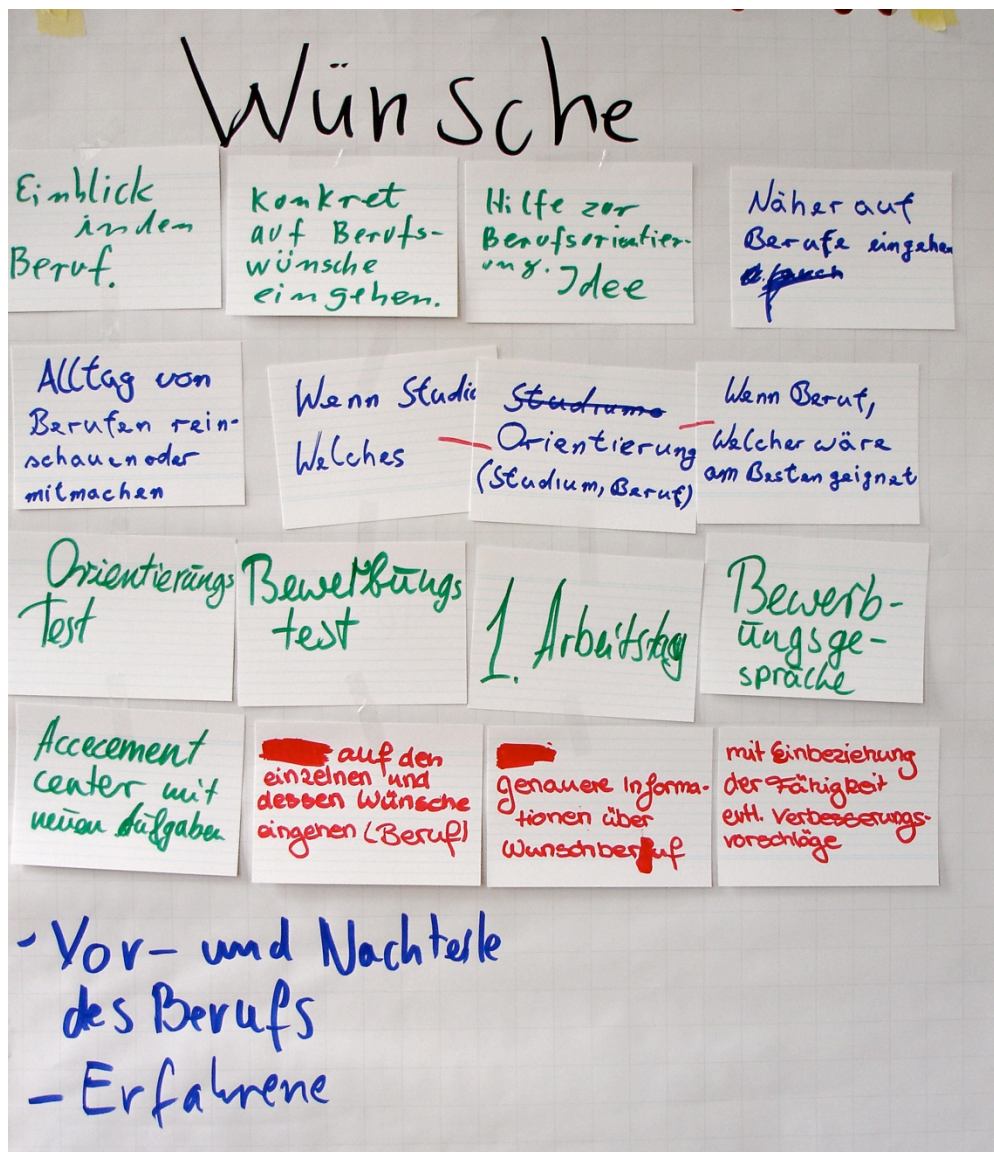 Wünsche
Einblick
in den
Beruf.
Konkret
auf Berufs-
wünsche
eingehen.
Hilfe zur
Berufsorientier-
ung. Idee
Näher auf
Berufe eingehen
Alltag von
Berufen rein-
schauen oder
mitmachen
Wenn Studi
Welches
Studiums
Orientierung
(Studium, Beruf)
Wenn Beruf,
Welcher wäre
am Besten geignet
Orientierungs
Test
Bewerbungs
test
1. Arbeitstag
Bewerb-
ungsge-
spräche
Accecement
center mit
neuen Aufgaben
auf den
einzelnen und
dessen Wünsche
eingehen (Beruf)
genauere Informa-
tionen über
Wunschberuf
mit Einbeziehung
der Fähigkeit
evtl. Verbesserungs-
vorschläge
- Vor- und Nachteile
des Berufs
- Erfahrene